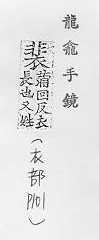 龍龕手鏡
裴蒲回反衣
長也又姓
(衣部
P101)